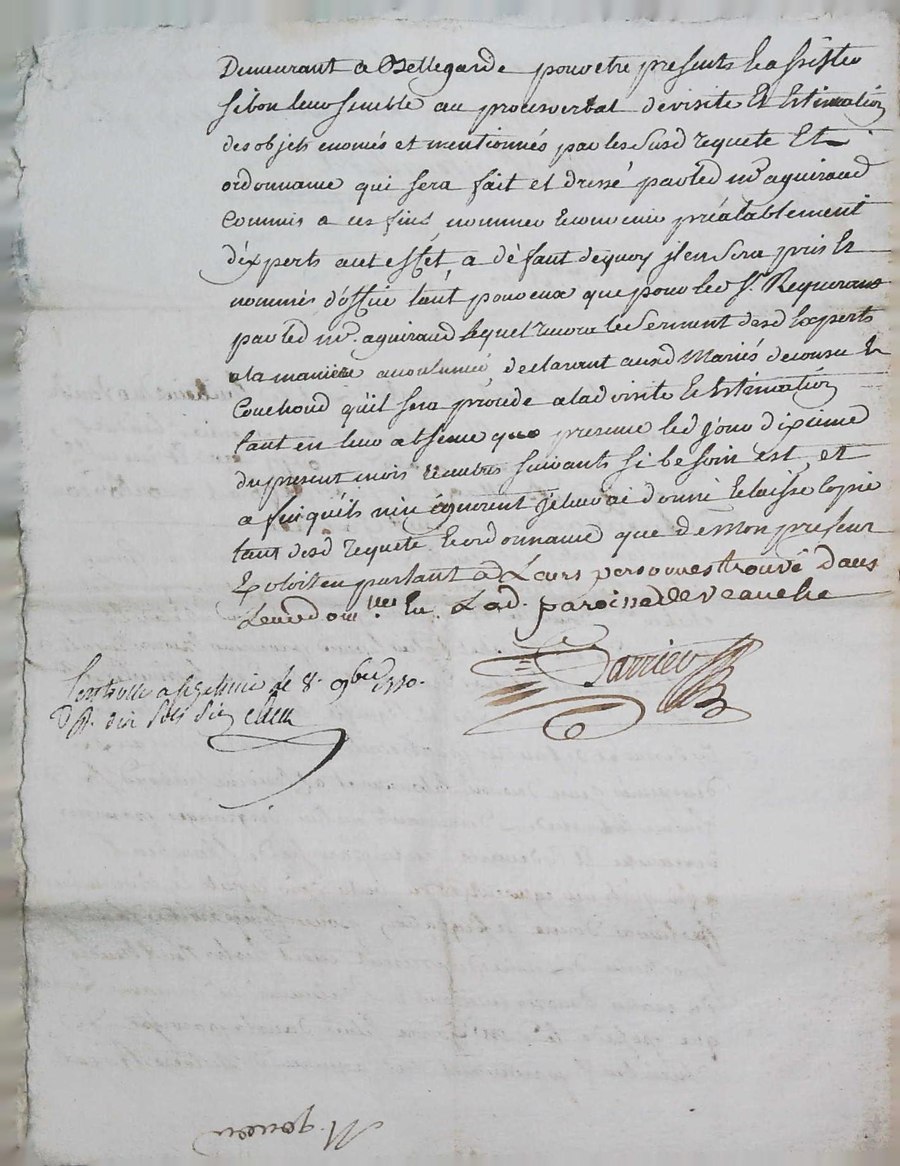 Demeurant a Bellegarde pour etre presents et assister
si bon leur semble au procès verbal de visite et Estimation
des objets enomés et mentionnés par les Susd requete Et
ordonnance qui sera fait et dressé par led me aguiraud
Commis a ces fins, nommer Econvenir préalablement
déxperts a cet effet, a défaut dequoy jl en sera pris Et
nommés d'office tant pour eux que pour led sr Requerant
par led me. aguiraud lequel recevra le Serment desd Experts
ala maniere acoutumée, declarant ausd Mariés Et
Couchoud qu'il sera procédé alad visite Et Estimation
tant en leur absence que presence led jour dixieme
du present mois Et autres suivants si besoin est, et
a fin qu'ils n'en ignorent je leur ai donné Et laissé Copie
tant desd requete Et ordonnance que de mon present
Exploit en parlant a Leurs personnes trouvé dans
Leur dom.lle En Lad. paroisse de Veauche
Barrieu
Controllé a st galmier le 8. 9bre 1770.
R. dix sols six